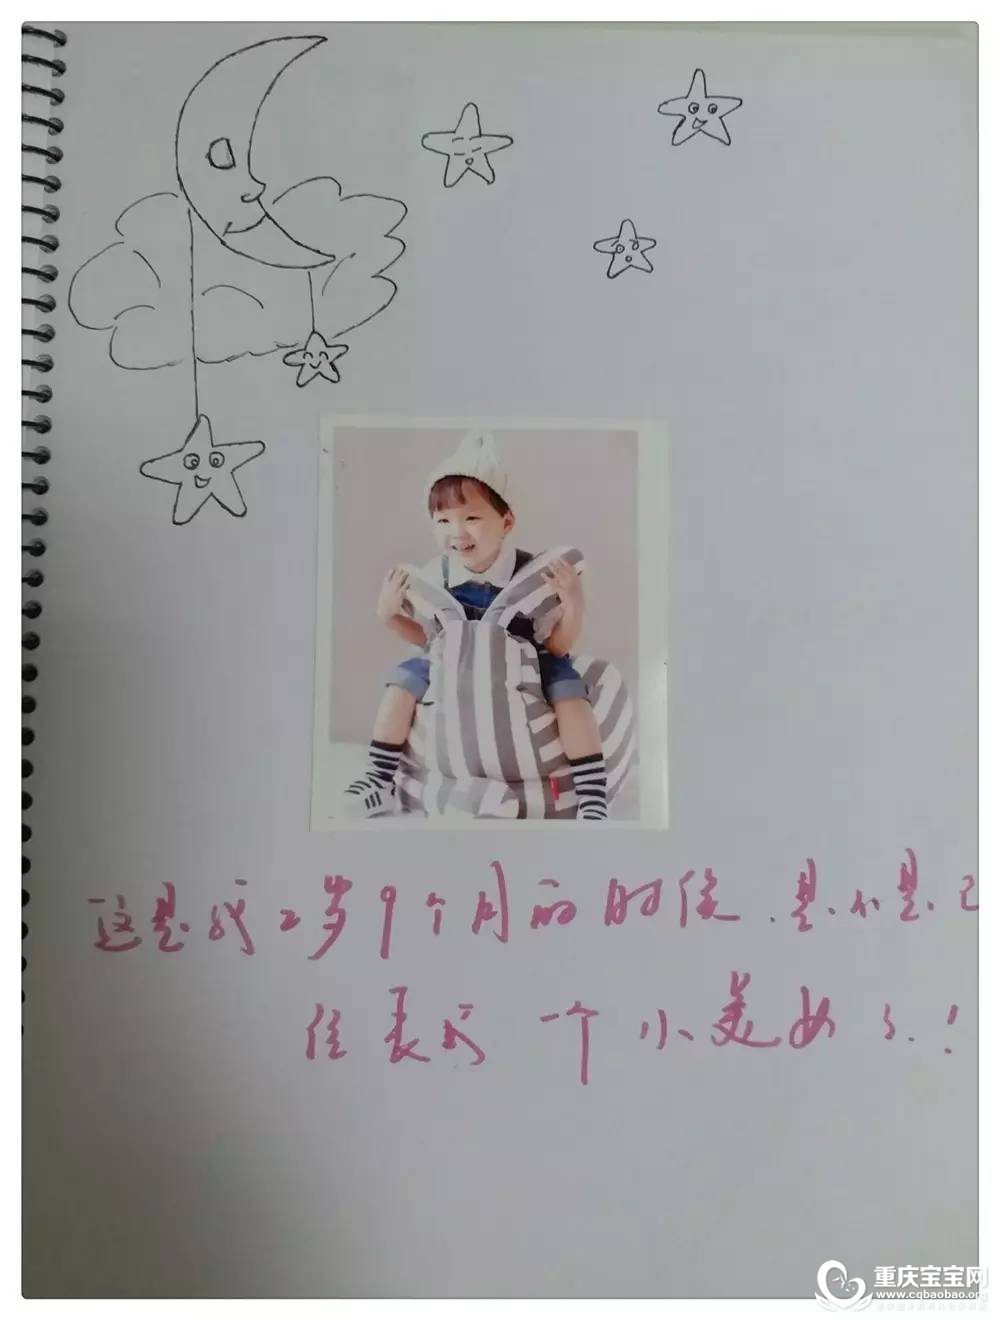 这是我2岁9个月的时侯.是不是.已
径表成一个小美女了.!
重庆宝宝网
www.cqbaobao.org